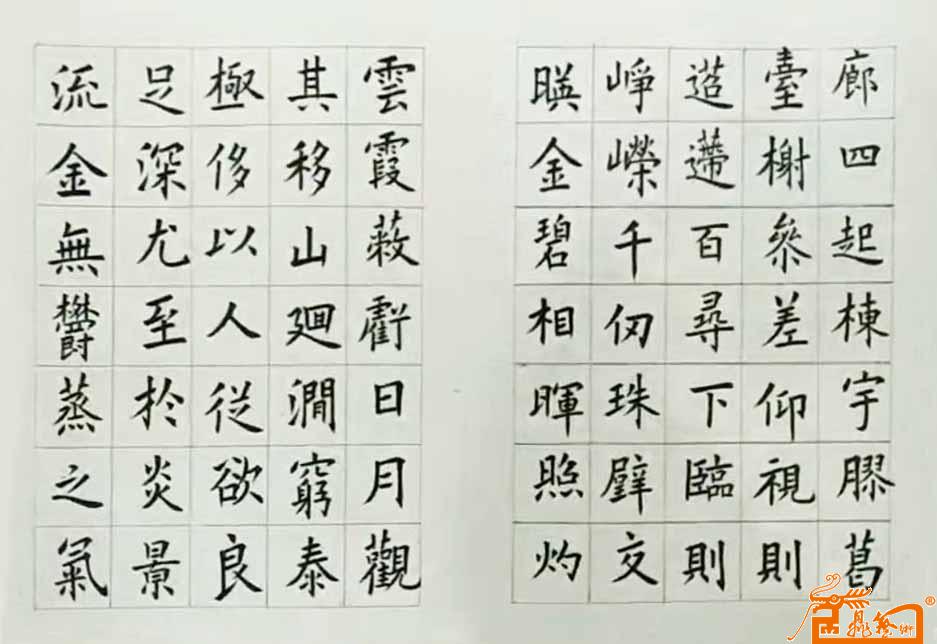 廊四起棟宇膠葛
臺榭參差仰視則
迢遰百尋下臨則
崢嶸千仞珠璧交
暎金碧相暉照灼
雲霞蔽虧日月觀
其移山廻澗窮泰
極侈以人從欲良
足深尤至於炎景
流金無鬱蒸之氣